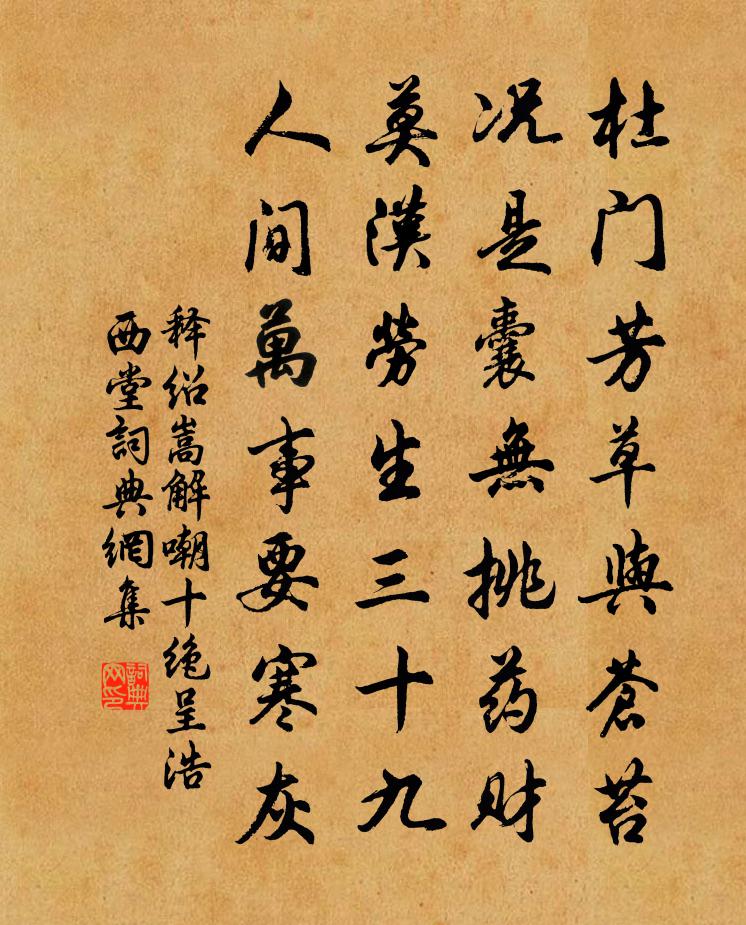 杜门芳草與蒼苔
况是囊無挑药财
莫漢勞生三十九
人间萬事要寒灰
释绍嵩解嘲十绝呈浩
西堂詞典網集
詞典网印